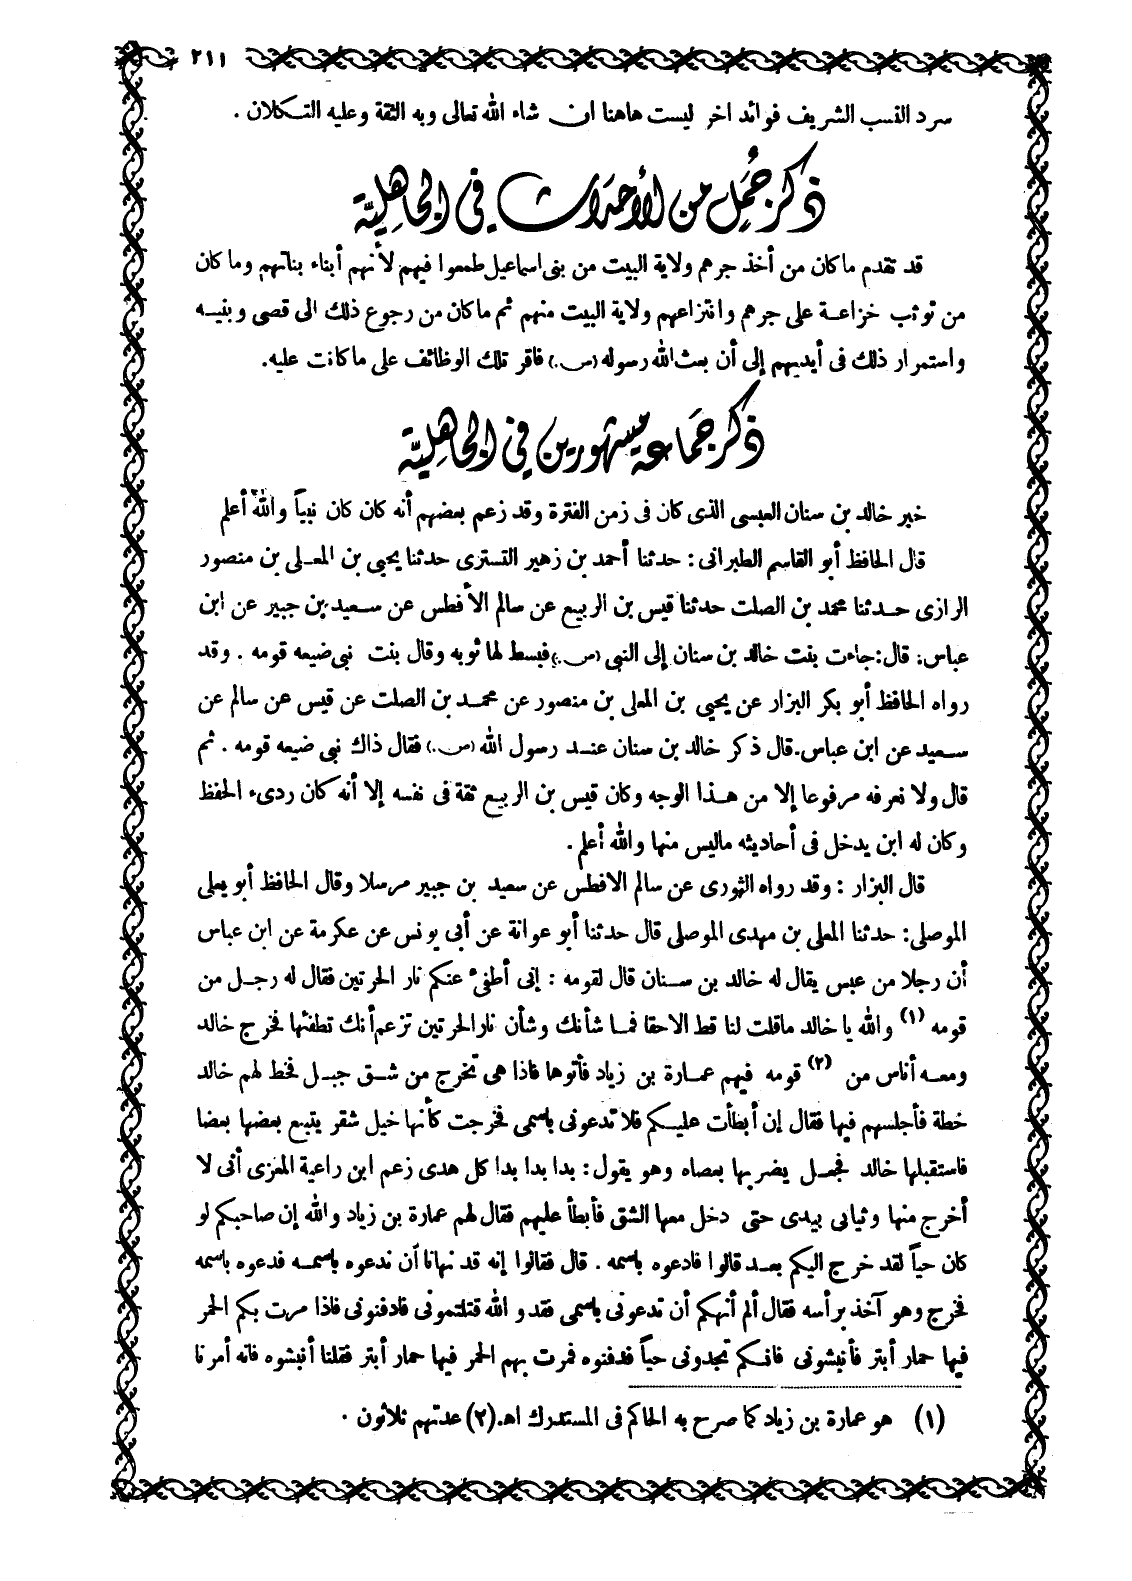 ٢١١
سرد النسب الشريف فوائد اخر ليست هاهنا ان شاء الله تعالى وبه الثقة وعليه التكلان .
ذكر جُمَل من الأحداث في الجاهليّة
قد تقدم ما كان من أخذ جرهم ولاية البيت من بنى اسماعيل طمعوا فيهم لأنهم أبناء بناتهم وما كان
من توثب خزاعة على جرهم وانتزاعهم ولاية البيت منهم ثم ما كان من رجوع ذلك الى قصى وبنيه
واستمرار ذلك فى أيديهم إلى أن بعث الله رسوله (ص.) فاقر تلك الوظائف على ما كانت عليه.
ذكر جَماعة مشهورين في الجاهليّة
خبر خالد بن سنان العبسى الذى كان فى زمن الفترة وقد زعم بعضهم أنه كان كان نبياً والله أعلم
قال الحافظ أبو القاسم الطبرانى : حدثنا أحمد بن زهير التسترى حدثنا يحيى بن المعلى بن منصور
الرازى حدثنا محمد بن الصلت حدثنا قيس بن الربيع عن سالم الأفطس عن سعيد بن جبير عن ابن
عباس: قال: جاءت بنت خالد بن سنان إلى النبي (ص.) فبسط لها ثوبه وقال بنت نبى ضيعه قومه . وقد
رواه الحافظ أبو بكر البزار عن يحيى بن المعلى بن منصور عن محمد بن الصلت عن قيس عن سالم عن
سعيد عن ابن عباس.قال ذكر خالد بن سنان عند رسول الله (ص.) فقال ذاك نبى ضيعه قومه . ثم
قال ولا نعرفه مرفوعا إلا من هذا الوجه وكان قيس بن الربيع ثقة فى نفسه إلا أنه كان ردىء الحفظ
وكان له ابن يدخل فى أحاديثه ماليس منها والله أعلم .
قال البزار : وقد رواه الثورى عن سالم الافطس عن سعيد بن جبير مرسلا وقال الحافظ أبو يعلى
الموصلى : حدثنا المعلى بن مهدى الموصلى قال حدثنا أبو عوانة عن أبى يونس عن عكرمة عن ابن عباس
أن رجلا من عبس يقال له خالد بن سنان قال لقومه : إنى أطفىء عنكم نار الحرتين فقال له رجل من
قومه (١) والله يا خالد ماقلت لنا قط الاحقا فما شأنك وشأن نار الحرتين تزعم أنك تطفئها فخرج خالد
ومعه أناس من (٢) قومه فيهم عمارة بن زياد فأتوها فاذا هى تخرج من شق جبل فخط لهم خالد
خطة فأجلسهم فيها فقال إن أبطأت عليكم فلا تدعونى باسمى فخرجت كأنها خيل شقر يتبع بعضها بعضا
فاستقبلها خالد فجعل يضربها بعصاه وهو يقول : بدا بدا بدا كل هدى زعم ابن راعية المعزى أنى لا
أخرج منها وثيابى بيدى حتى دخل معها الشق فأبطأ عليهم فقال لهم عمارة بن زياد والله إن صاحبكم لو
كان حياً لقد خرج اليكم بعد قالوا فادعوه باسمه . قال فقالوا إنه قد نهانا أن ندعوه باسمه فدعوه باسمه
فخرج وهو آخذ برأسه فقال ألم أنهكم أن تدعونى باسمى فقد والله قتلتمونى فادفنونى فاذا مرت بكم الحمر
فيها حمار أبتر فأنبشونى فانكم تجدونى حياً فدفنوه فمرت بهم الحمر فيها حمار أبتر فقلنا أنبشوه فانه أمرنا
(١) هو عمارة بن زياد كما صرح به الحاكم فى المستدرك اهـ.(٢) عدتهم ثلاثون .